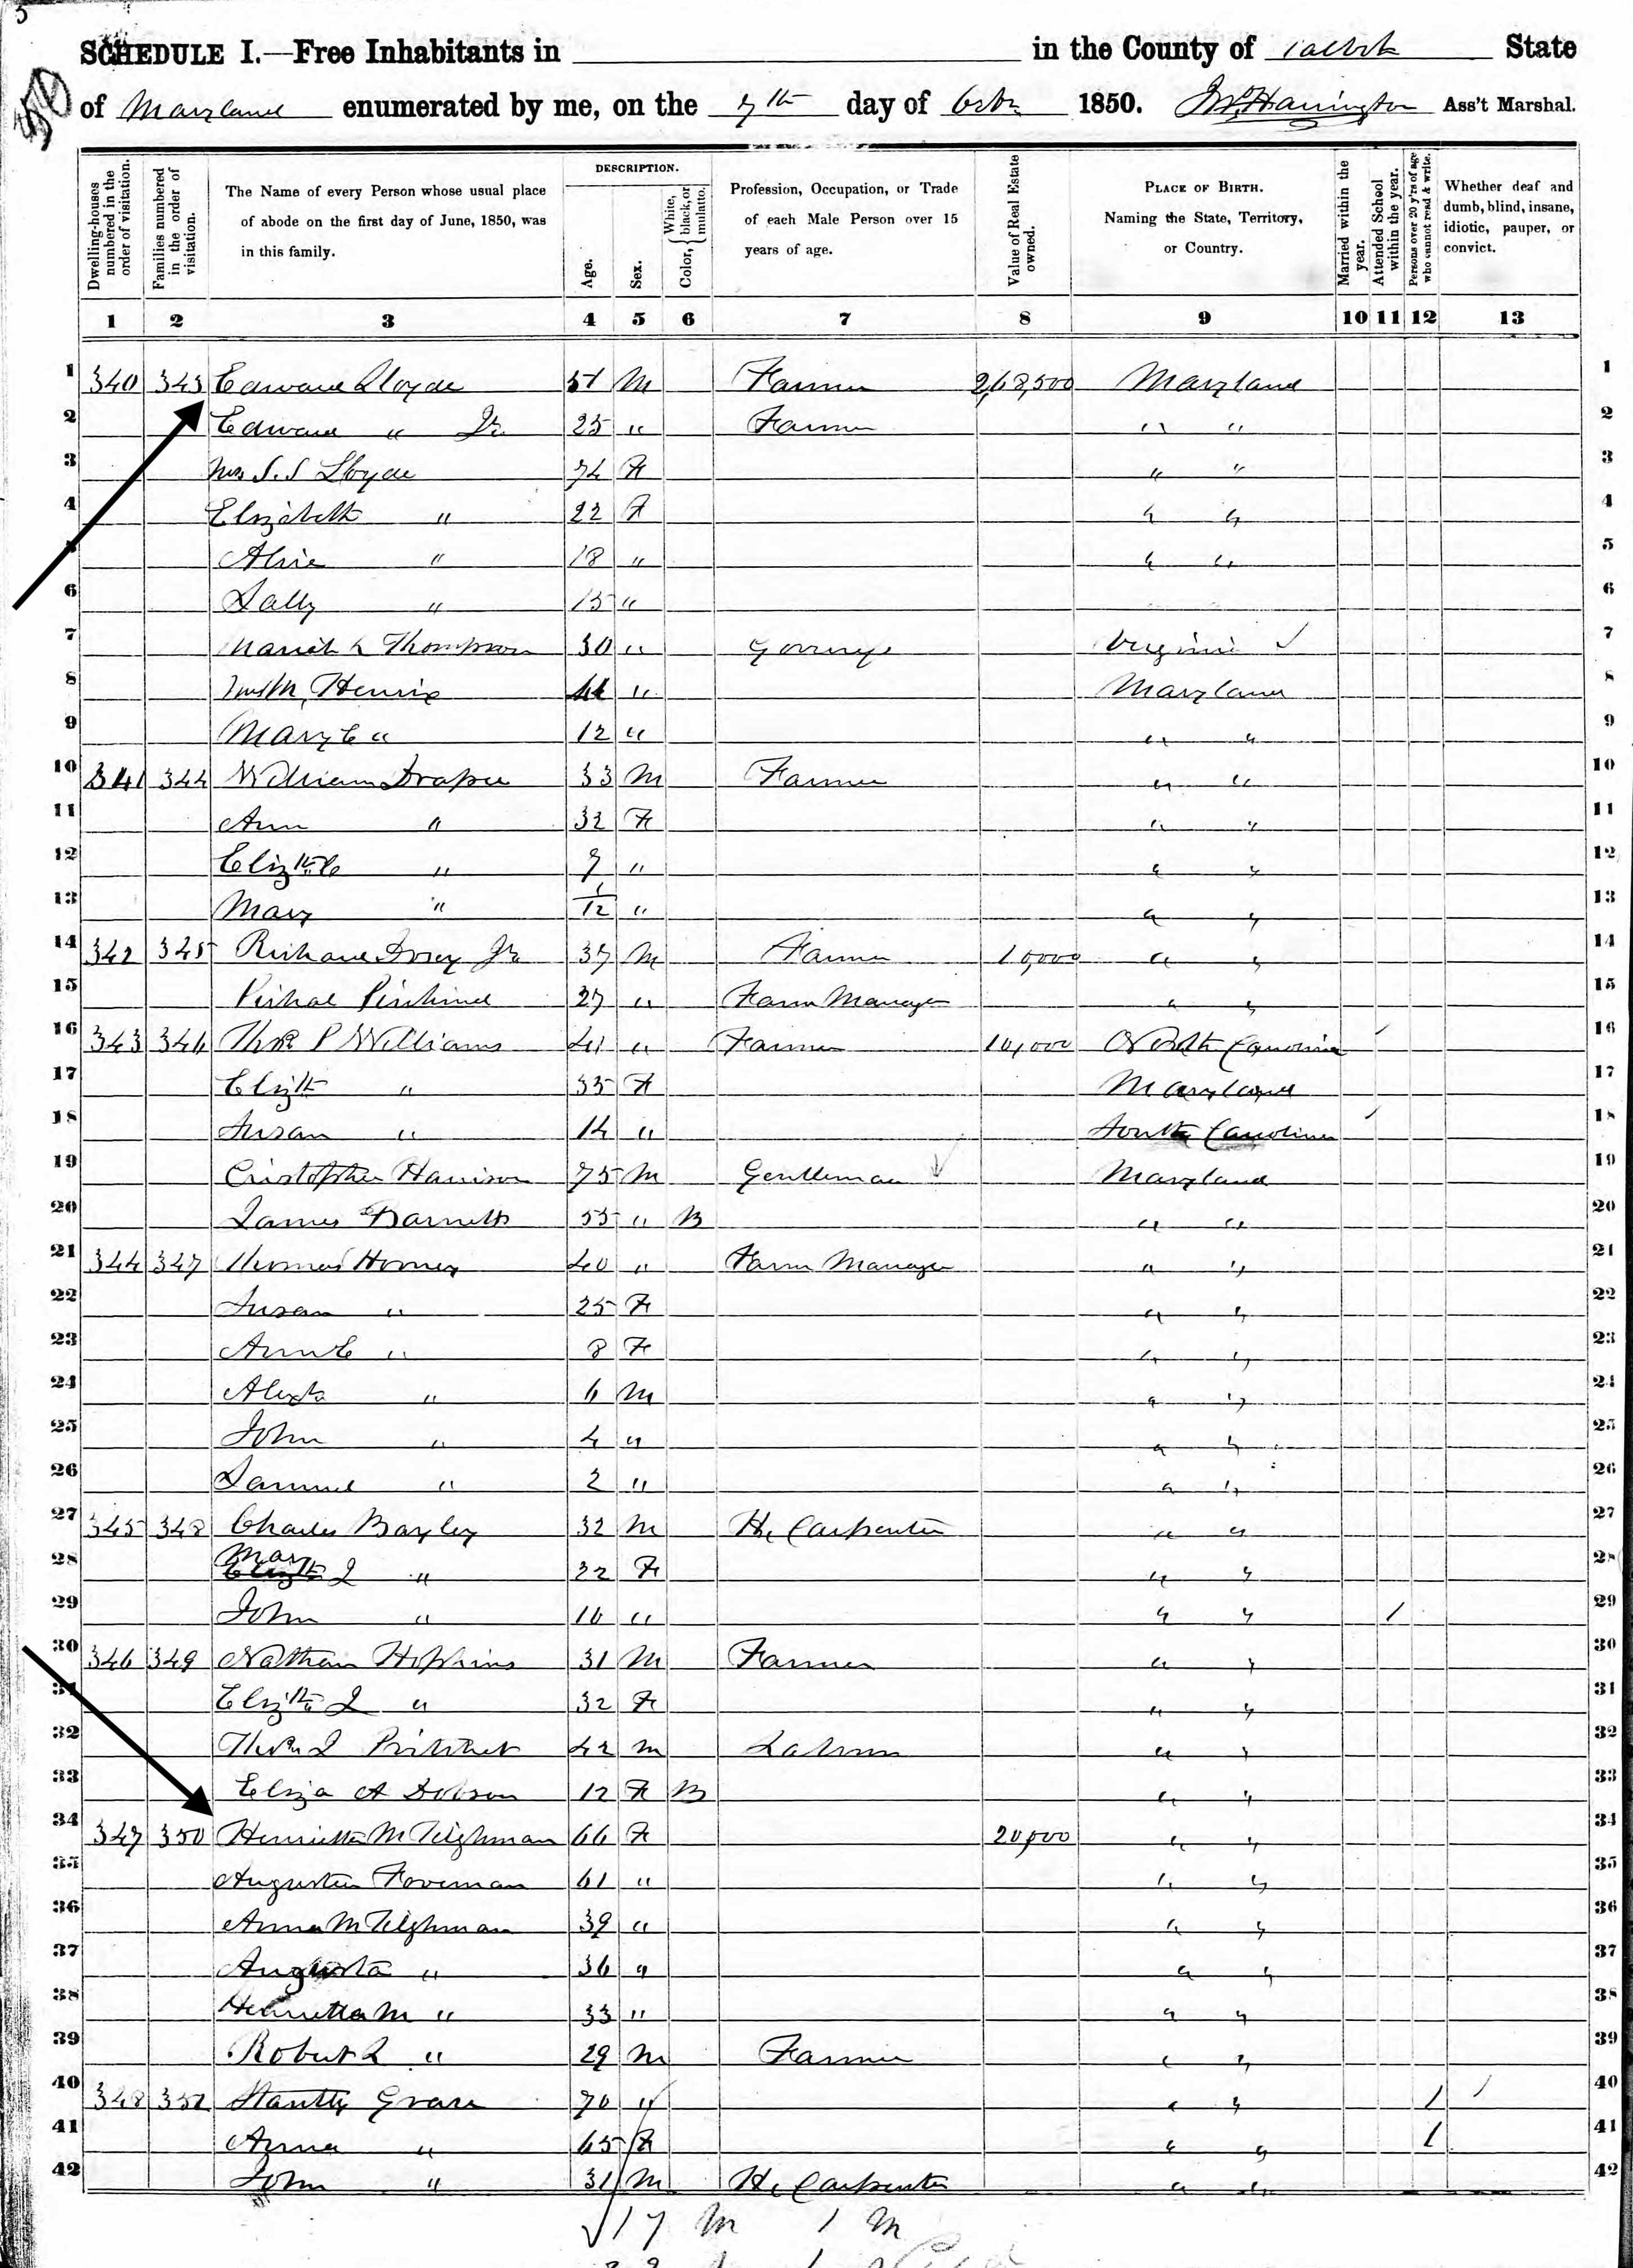 SCHEDULE I.—Free Inhabitants in in the County of Talbot State
of Maryland enumerated by me, on the 7th day of Octbr 1850. Harrington Ass't Marshal.
Dwelling-houses numbered in the order of visitation.
Families numbered in the order of visitation.
The Name of every Person whose usual place of abode on the first day of June, 1850, was in this family.
DESCRIPTION.
Age.
Sex.
Color, { White, black, or mulatto.
Profession, Occupation, or Trade of each Male Person over 15 years of age.
Value of Real Estate owned.
PLACE OF BIRTH. Naming the State, Territory, or Country.
Married within the year.
Attended School within the year.
Persons over 20 y'rs of age who cannot read & write.
Whether deaf and dumb, blind, insane, idiotic, pauper, or convict.
1 2 3 4 5 6 7 8 9 10 11 12 13
1 340 343 Edward Lloyde 51 M Farmer 268,500 Maryland 1
2 Edward " Jr. 25 " Farmer " " 2
3 Mrs S. S Lloyde 74 F " " 3
4 Elizabeth " 22 F " " 4
Alice " 18 " " " 5
6 Sally " 15 " 6
7 Thompson 30 " Virginia 7
8 " Maryland 8
9 Mary E " 12 " " " 9
10 341 344 William Draper 33 M Farmer " " 10
11 Ann " 32 F " " 11
12 " 7 " " " 12
13 Mary " 1/12 " " " 13
14 342 345 Richard Jr 37 M Farmer 10,000 " " 14
15 27 " Farm Manager " " 15
16 343 346 Thos P Williams 41 " Farmer 10,000 North Carolina 16
17 Elizth " 35 F Maryland 17
18 Susan " 14 " South Carolina 18
19 Cristopher Harrison 75 M Gentleman Maryland 19
20 James Barnett 55 " B " " 20
21 344 347 Thomas Horney 40 " Farm Manager " " 21
22 Susan " 25 F " " 22
23 Ann E " 8 F " " 23
24 " 6 M " " 24
25 John " 4 " " " 25
26 Samuel " 2 " " " 26
27 345 348 Charles Bayley 32 M H. Carpenter " " 27
28 Mary J " 22 F " " 28
29 John " 10 " " " / 29
30 346 349 Nathan Hopkins 31 M Farmer " " 30
31 Elizth J " 32 F " " 31
32 42 M Laborer " " 32
33 Eliza A Dobson 12 F B " " 33
34 347 350 Henrietta M Tilghman 66 F 20,000 " " 34
35 Foreman 61 " " " 35
36 Anna M Tilghman 39 " " " 36
37 Augusta " 36 " " " 37
38 Henrietta M " 33 " " " 38
39 Robert L " 29 M Farmer " " 39
40 348 351 70 " " " / 40
41 Anna " 65 F " " / 41
42 John " 31 M H. Carpenter " " 42
17 M 1 M